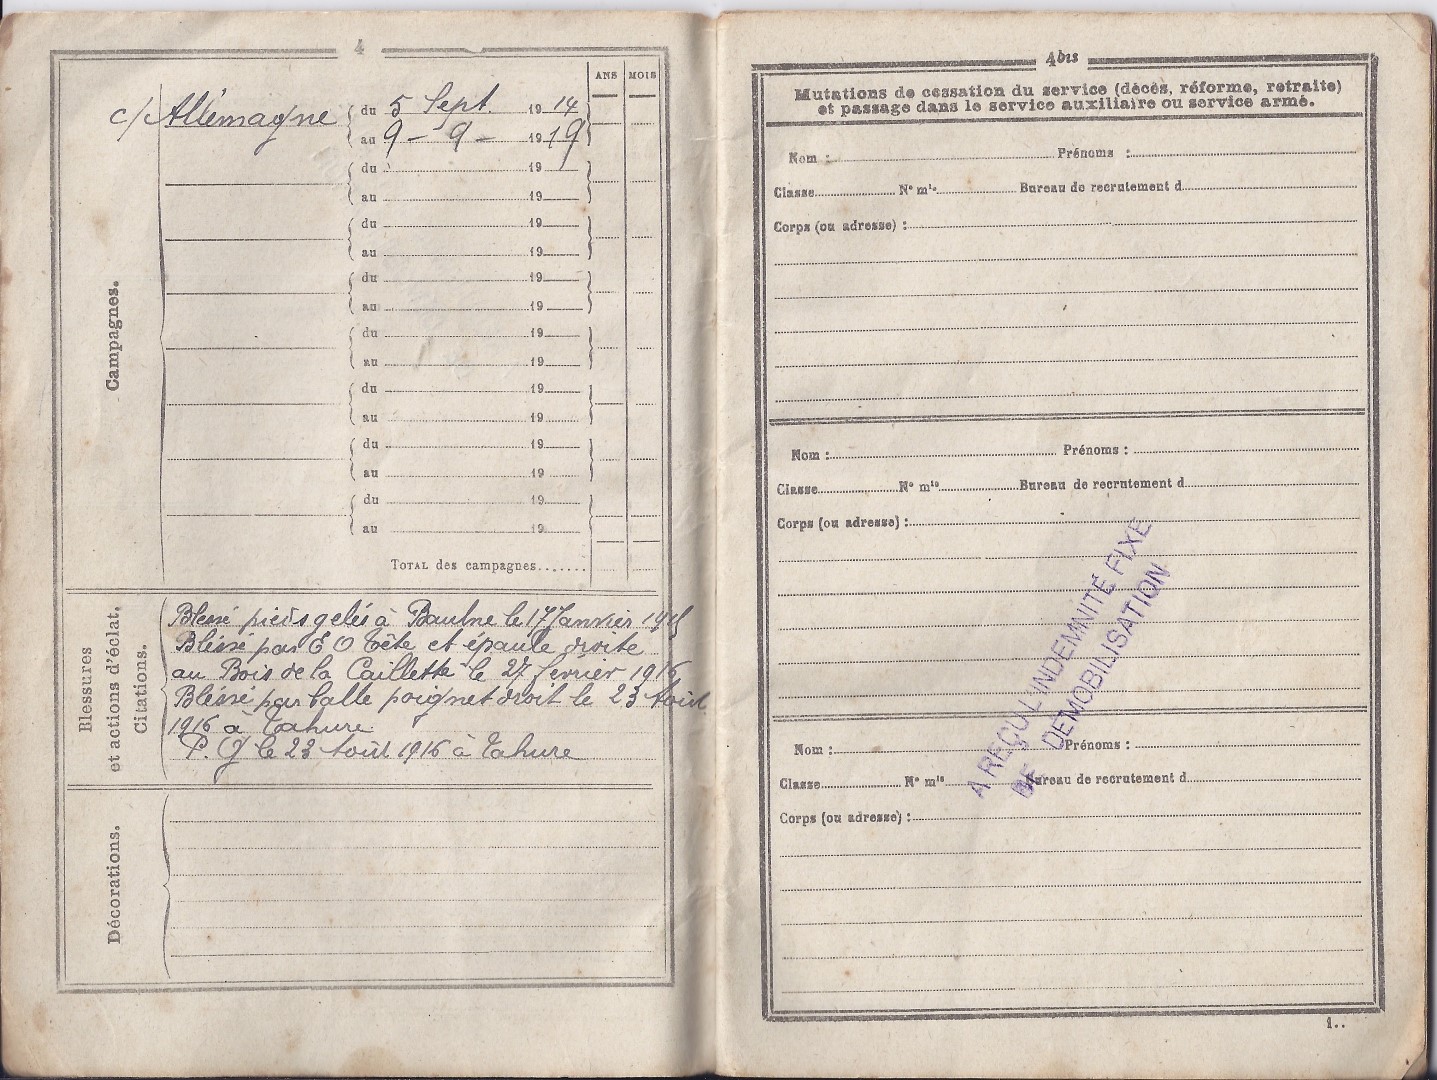 4
ANS MOIS
c/ Allemagne du 5 Sept. 19 14
au 9 - 9 - 19 19
du 19
au 19
du 19
au 19
du 19
au 19
du 19
au 19
du 19
au 19
du 19
au 19
du 19
au 19
TOTAL des campagnes.......
Campagnes.
Blessures
et actions d'éclat.
Citations.
Blessé pieds gelés à Baulne le 17 Janvier 1915
Bléssé par E O tête et épaule droite
au Bois de la Caillette le 27 fevrier 1916
Bléssé par balle poignet droit le 23 Août
1916 à Tahure
P. G le 23 Août 1916 à Tahure
Décorations.
4bis
Mutations de cessation du service (décès, réforme, retraite)
et passage dans le service auxiliaire ou service armé.
Nom : Prénoms :
Classe N° mle Bureau de recrutement d
Corps (ou adresse) :
Nom : Prénoms :
Classe N° mle Bureau de recrutement d
Corps (ou adresse) :
A REÇU L'INDEMNITÉ FIXE
DE DEMOBILISATION
Nom : Prénoms :
Classe N° mle Bureau de recrutement d
Corps (ou adresse) :
1..